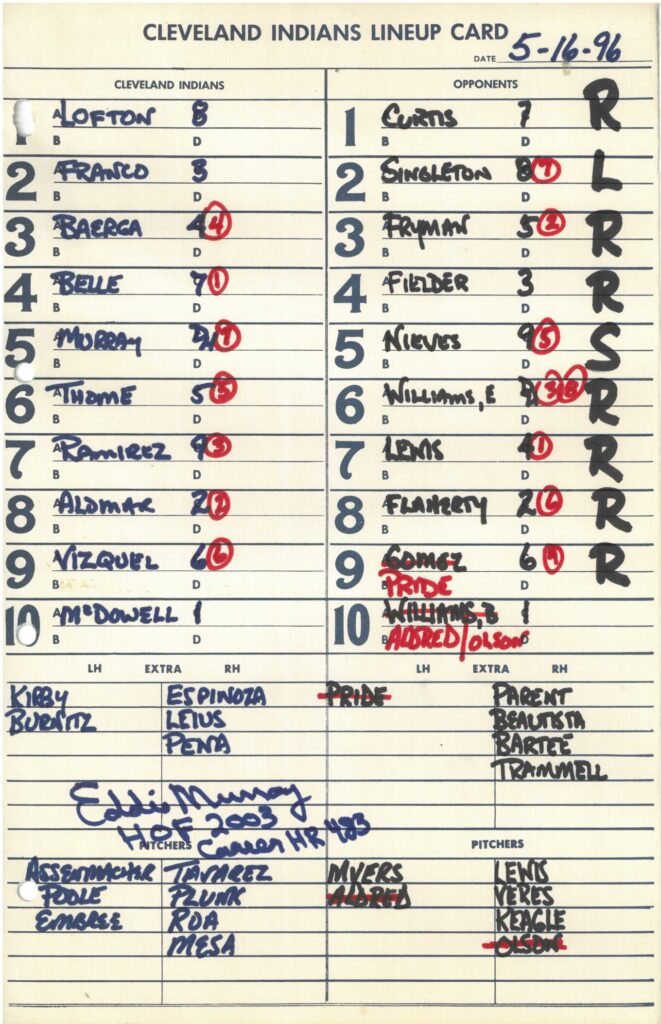 CLEVELAND INDIANS LINEUP CARD
DATE 5-16-96
CLEVELAND INDIANS
1 A LOFTON 8
B D
2 A FRANCO 3
B D
3 A BAERGA 4 4
B D
4 A BELLE 7 1
B D
5 A MURRAY DH
B D
6 A THOME 5 5
B D
7 A RAMIREZ 9 3
B D
8 A ALOMAR 2 2
B D
9 A VIZQUEL 6 6
B D
10 A McDOWELL 1
B D
OPPONENTS
1 A CURTIS 7 R
B D
2 A SINGLETON 8 7 L
B D
3 A FRYMAN 5 2 R
B D
4 A FIELDER 3 R
B D
5 A NIEVES 9 5 S
B D
6 A WILLIAMS, E DH 3 R
B D
7 A LEWIS 4 1 R
B D
8 A FLAHERTY 2 6 R
B D
9 A GOMEZ 6 R
B PRIDE D
10 A WILLIAMS, B 1
B ALDRED/OLSON D
LH EXTRA RH
KIRBY ESPINOZA
BURNITZ LEIUS
PENA
LH EXTRA RH
PRIDE PARENT
BEAUTISTA
BARTEE
TRAMMELL
Eddie Murray
HOF 2003
Career HR 483
PITCHERS
ASSENMACHER TAVAREZ
POOLE PLUNK
EMBREE ROA
MESA
PITCHERS
MYERS LEWIS
ALDRED VERES
KEAGLE
OLSON